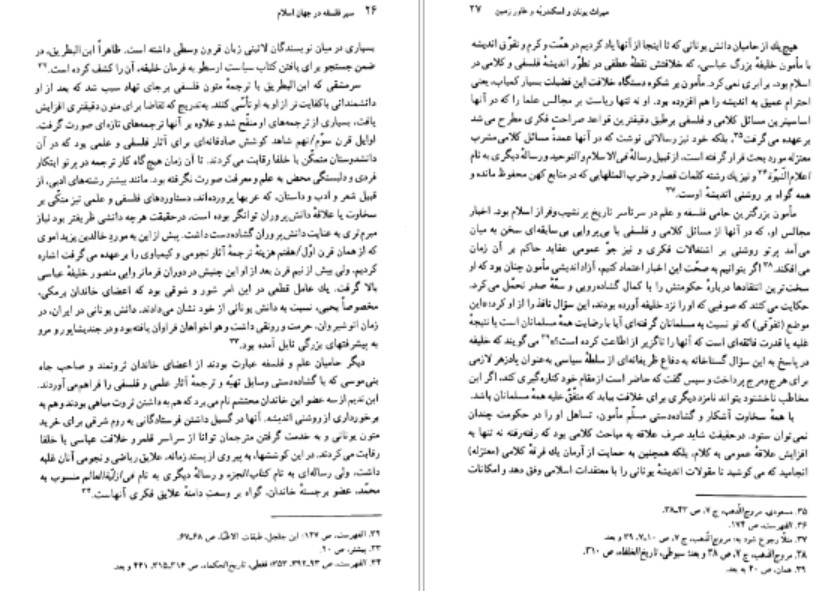 ۲۶ سیر فلسفه در جهان اسلام
بسیاری در میان نویسندگان لاتینی زبان قرون وسطی داشته است. ظاهراً ابن‌البطریق، در
ضمن جستجو برای یافتن کتاب سیاست ارسطو به فرمان خلیفه، آن را کشف کرده است.
سرمشقی که ابن‌البطریق با ترجمهٔ متون فلسفی برجای نهاد سبب شد که بعد از او
دانشمندانی با کفایت‌تر از او به او تأسی کنند. به‌تدریج که تقاضا برای متون دقیقتری افزایش
یافت، بسیاری از ترجمه‌های او منقّح شد و علاوه بر آنها ترجمه‌های تازه‌ای صورت گرفت.
اوایل قرن سوم/نهم شاهد کوشش صادقانه‌ای برای آثار فلسفی و علمی بود که در آن
دانشدوستان متمکّن با خلفا رقابت می‌کردند. تا آن زمان هیچ‌گاه کار ترجمه در پرتو ابتکار
فردی و دلبستگی محض به علم و معرفت صورت نگرفته بود. مانند بیشتر رشته‌های ادبی، از
قبیل شعر و ادب و داستان، که عربها پرورده‌اند، دستاوردهای فلسفی و علمی نیز متکی بر
سخاوت یا علاقهٔ دانش‌پروران توانگر بوده است. درحقیقت هرچه دانشی ظریفتر بود نیاز
مبرم‌تری به عنایت دانش‌پروران گشاده‌دست داشت. پیش از این به مورد خالدبن یزید اموی
که از همان قرن اول/هفتم هزینهٔ ترجمهٔ آثار نجومی و کیمیاوی را برعهده می‌گرفت اشاره
کردیم. ولی بیش از نیم قرن بعد از او این جنبش در دوران فرمانروایی منصور خلیفهٔ عباسی
بالا گرفت. یك عامل قطعی در این امر شور و شوقی بود که اعضای خاندان برمکی،
مخصوصاً یحیی، نسبت به دانش یونانی از خود نشان می‌دادند. دانش یونانی در ایران، در
زمان انوشیروان، حرمت و رونقی داشت و هواخواهان فراوان یافته بود و در جندیشاپور و مرو
به پیشرفتهای بزرگی نایل آمده بود.۳۳
دیگر حامیان علم و فلسفه عبارت بودند از اعضای خاندان ثروتمند و صاحب جاه
بنی‌موسی که با گشاده‌دستی وسایل تهیّه و ترجمهٔ آثار علمی و فلسفی را فراهم می‌آوردند.
ابن‌ندیم از سه عضو این خاندان محتشم نام می‌برد که هم به داشتن ثروت مباهی بودند و هم به
برخورداری از روشنی اندیشه. آنها در گسیل داشتن فرستادگانی به روم شرقی برای خرید
متون یونانی و به خدمت گرفتن مترجمان توانا از سراسر قلمرو خلافت عباسی با خلفا
رقابت می‌کردند. در این کوششها، به پیروی از پسند زمانه، علایق ریاضی و نجومی آنان غلبه
داشت، ولی رساله‌ای به نام کتاب‌الجزء و رسالهٔ دیگری به نام فی‌ازلیّةالعالم منسوب به
محمّد، عضو برجستهٔ خاندان، گواه بر وسعت دامنهٔ علایق فکری آنهاست.۳۴
۳۲. الفهرست، ص ۱۲۷؛ ابن جلجل، طبقات الاطبّا، ص ۶۸-۶۷.
۳۳. پیشتر، ص ۲۰.
۳۴. الفهرست، ص ۹۳-۳۹۲، ۳۵۲؛ قفطی، تاریخ‌الحکماء، ص ۳۱۶-۳۱۵، ۴۴۱ و بعد.
میراث یونان و اسکندریّه و خاورزمین ۲۷
هیچ‌یك از حامیان دانش یونانی که تا اینجا از آنها یاد کردیم در همّت و کرم و تفوّق اندیشه
با مأمون خلیفهٔ بزرگ عباسی، که خلافتش نقطهٔ عطفی در تطوّر اندیشهٔ فلسفی و کلامی در
اسلام بود، برابری نمی‌کرد. مأمون بر شکوه دستگاه خلافت این فضیلت بسیار کمیاب، یعنی
احترام عمیق به اندیشه را هم افزوده بود. او نه تنها ریاست بر مجالس علما را که در آنها
اساسیترین مسائل کلامی و فلسفی برطبق دقیقترین قواعد صراحت فکری مطرح می‌شد
برعهده می‌گرفت۳۵، بلکه خود نیز رسالاتی نوشت که در آنها عمدهٔ مسائل کلامی مشرب
معتزله مورد بحث قرار گرفته است، از قبیل رسالهٔ فی‌الاسلام والتوحید و رسالهٔ دیگری به نام
اعلام‌النّبوّة۳۶ و نیز یك رشته کلمات قصار و ضرب‌المثلهایی که در منابع کهن محفوظ مانده و
همه گواه بر روشنی اندیشهٔ اوست.۳۷
مأمون بزرگترین حامی فلسفه و علم در سرتاسر تاریخ پرنشیب‌وفراز اسلام بود. اخبار
مجالس او، که در آنها از مسائل کلامی و فلسفی با بی‌پروایی بی‌سابقه‌ای سخن به میان
می‌آمد پرتو روشنی بر اشتغالات فکری و نیز جوّ عمومی عقاید حاکم بر آن زمان
می‌افکند.۳۸ اگر بتوانیم به صحّت این اخبار اعتماد کنیم، آزاداندیشی مأمون چنان بود که او
سخت‌ترین انتقادها دربارهٔ حکومتش را با کمال گشاده‌رویی و سعهٔ صدر تحمّل می‌کرد.
حکایت می‌کنند که صوفیی که او را نزد خلیفه آورده بودند، این سؤال نافذ را از او کرد: «این
موضع (تفوّقی) که تو نسبت به مسلمانان گرفته‌ای آیا با رضایت همهٔ مسلمانان است یا نتیجهٔ
غلبه یا قدرت فائقه‌ای است که آنها را ناگزیر از اطاعت کرده است؟»۳۹ می‌گویند که خلیفه
در پاسخ به این سؤال گستاخانه به دفاع ظریفانه‌ای از سلطهٔ سیاسی به‌عنوان پادزهر لازمی
برای هرج‌ومرج پرداخت و سپس گفت که حاضر است از مقام خود کناره‌گیری کند، اگر این
مخاطب ناخشنود بتواند نامزد دیگری برای خلافت بیابد که متفّق‌علیه همهٔ مسلمانان باشد.
با همهٔ سخاوت آشکار و گشاده‌دستی مسلّم مأمون، تساهل او را در حکومت چندان
نمی‌توان ستود. درحقیقت شاید صرف علاقه به مباحث کلامی بود که رفته‌رفته نه تنها به
افزایش علاقهٔ عمومی به کلام، بلکه همچنین به حمایت از آرمان یك فرقهٔ کلامی (معتزله)
انجامید که می‌کوشید تا مقولات اندیشهٔ یونانی را با معتقدات اسلامی وفق دهد و امکانات
۳۵. مسعودی، مروج‌الذّهب، ج ۷، ص ۴۳-۳۸.
۳۶. الفهرست، ص ۱۷۴.
۳۷. مثلاً رجوع شود به: مروج‌الذّهب، ج ۷، ص ۱۰-۷، ۳۹ و بعد
۳۸. مروج‌الذهب، ج ۷، ص ۳۸ و بعد؛ سیوطی، تاریخ‌الخلفاء، ص ۳۱۰.
۳۹. همان، ص ۴۰ به بعد.